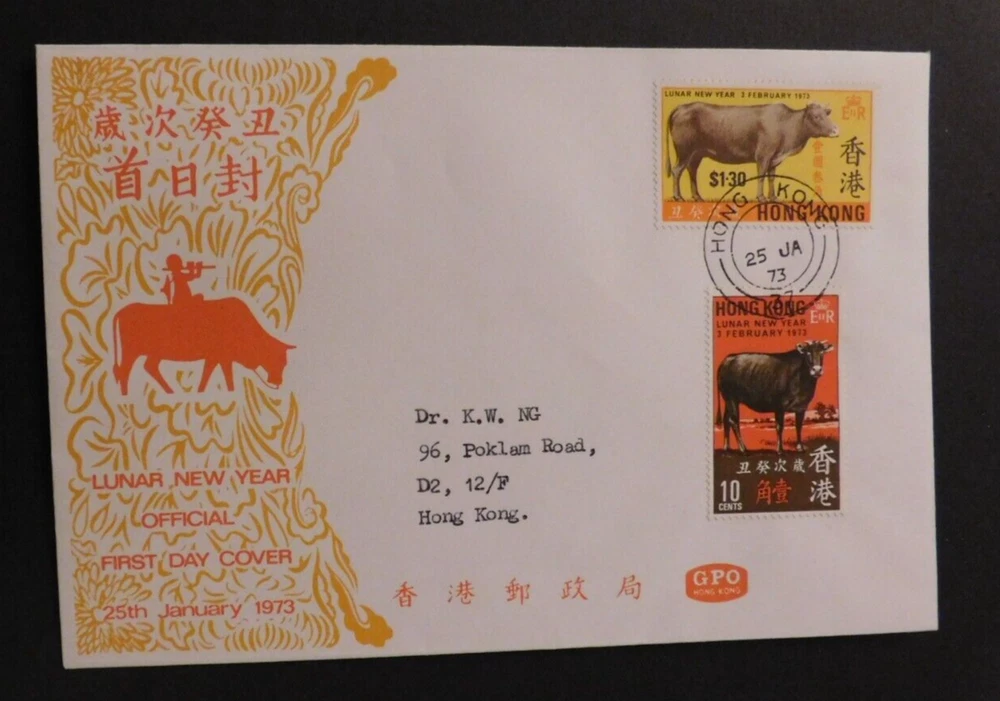 歲次癸丑
首日封
LUNAR NEW YEAR
OFFICIAL
FIRST DAY COVER
25th January 1973
LUNAR NEW YEAR 3 FEBRUARY 1973
EIIR
香港
$1·30
丑癸次
HONG KONG
HONG KONG
25 JA
73
HONG KONG
LUNAR NEW YEAR
3 FEBRUARY 1973
EIIR
丑癸次歲
香港
角壹
10
CENTS
Dr. K.W. NG
96, Poklam Road,
D2, 12/F
Hong Kong.
香港郵政局
GPO
HONG KONG